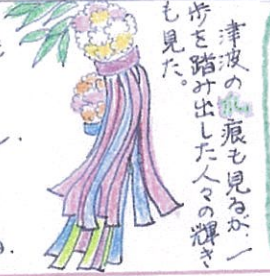 津波の痕も見るが、一
歩を踏み出した人々の輝き
も見た。